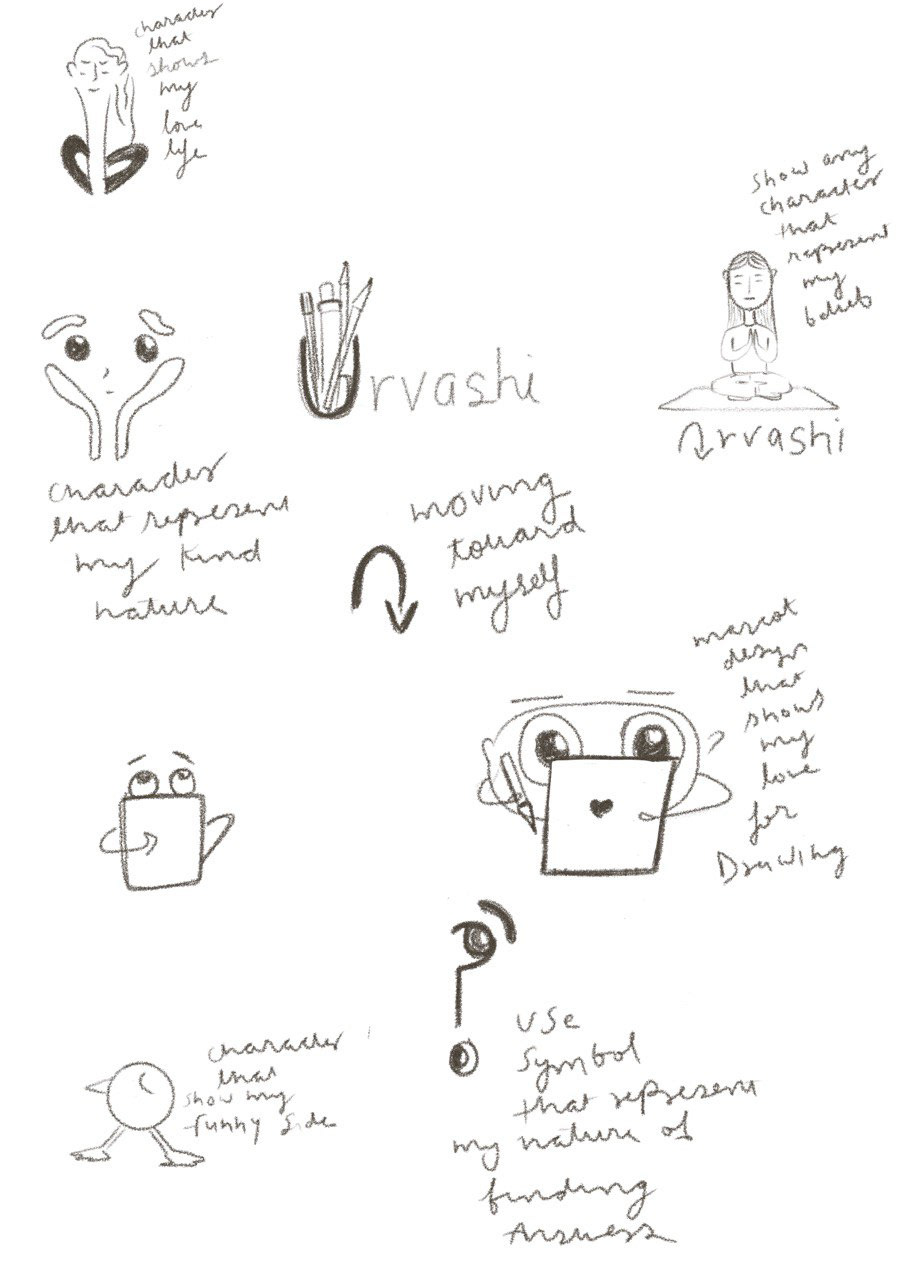 character
that
shows
my
love
life
show any
character
that
represent
my
beliefs
Urvashi
rvashi
character
that represent
my kind
nature
moving
toward
myself
mascot
design
that
shows
my
love
for
Drawing
character
that
show my
funny side
use
symbol
that represent
my nature of
finding
Answers